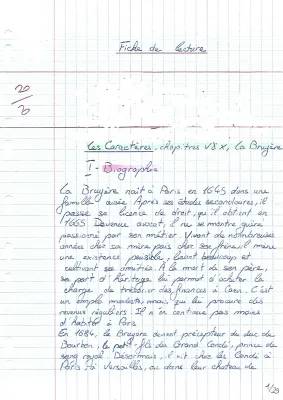 Fiche de lecture
20
Les Caractères, chapitres V à X, La Bruyère
I - Biographie
La Bruyère naît à Paris en 1645 dans une
famille aisée. Après ses études secondaires, il
passe sa licence de droit, qu'il obtient en
1665. Devenu avocat, il ne se montre guère
passionné par son métier. Vivant de nombreuses
années chez sa mère puis chez son frère, il mène
une existence paisible, lisant beaucoup et
cultivant ses amitiés. A la mort de son père,
sa part d'héritage lui permet d'acheter la
charge de trésorier des finances à Caen. C'est
un emploi modeste, mais qui lui procure des
revenus réguliers. Il n'en continue pas moins
d'habiter à Paris.
En 1684, la Bruyère devient précepteur du duc de
Bourbon, le petit-fils du Grand Condé, prince de
sang royal. Désormais, il vit chez les Condé à
Paris, à Versailles, ou dans leur château de
1/23